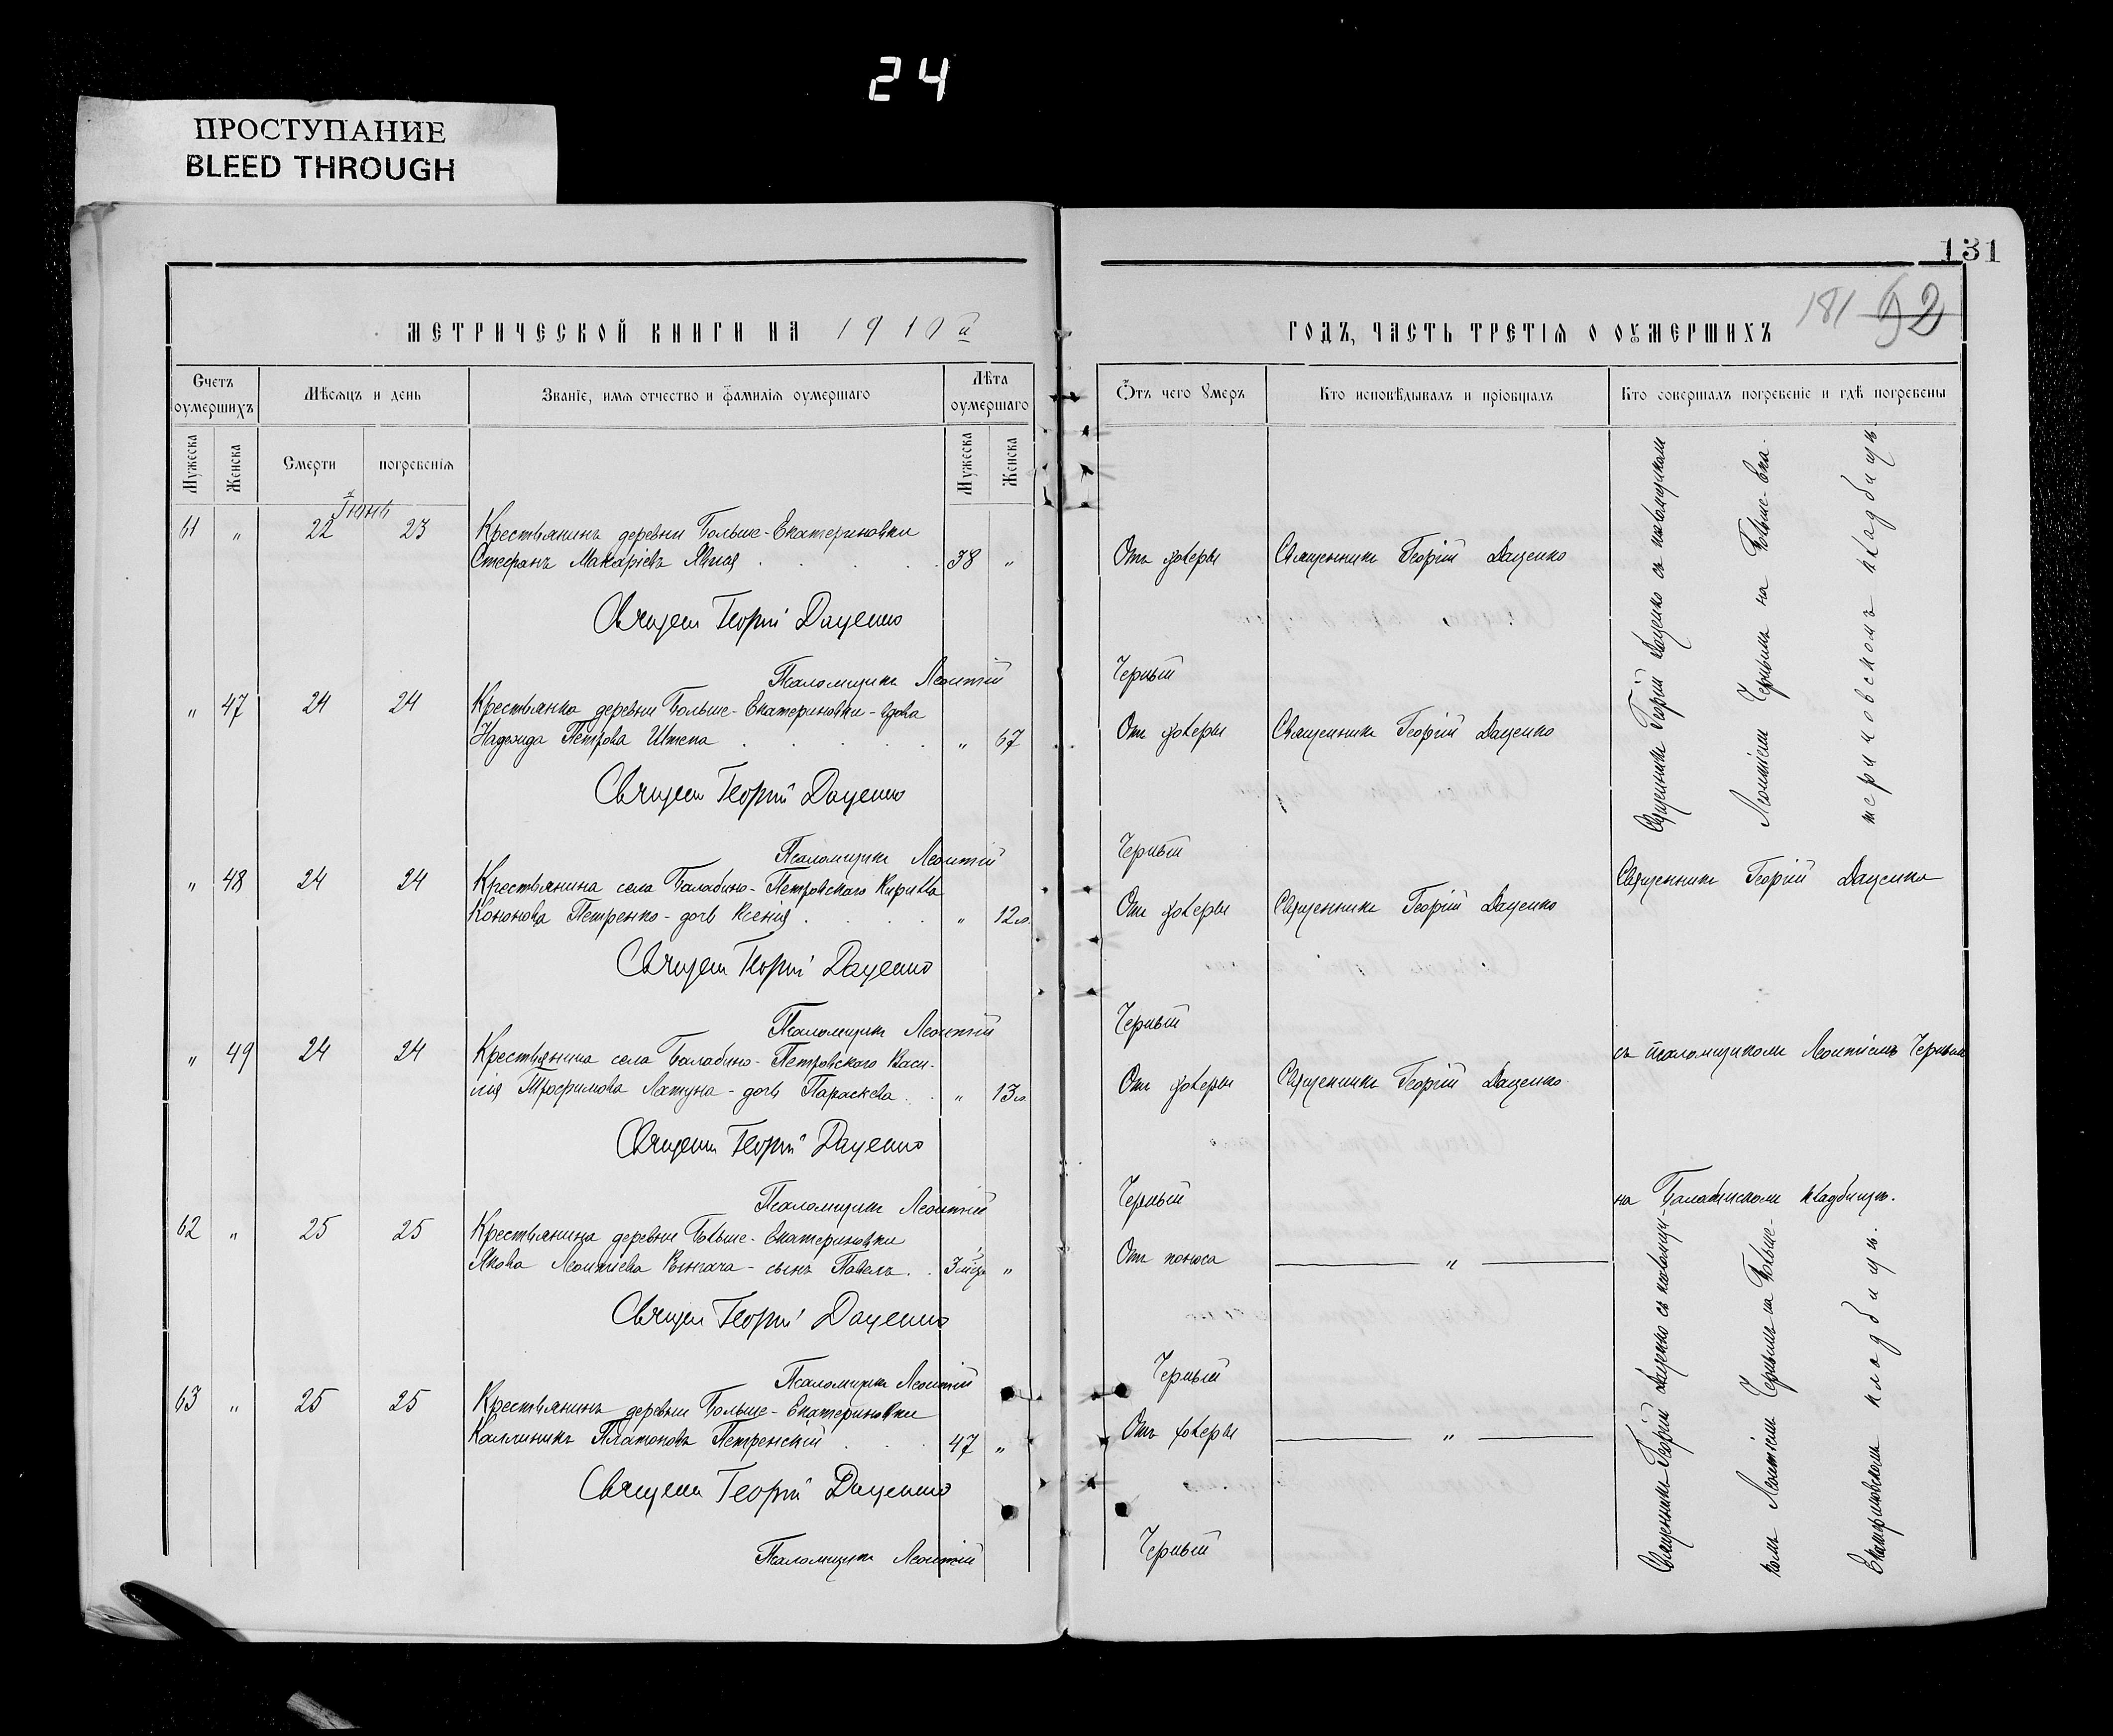 24
ПРОСТУПАНИЕ
BLEED THROUGH
131
181 92
МЕТРИЧЕСКОЙ КНИГИ НА 1910й
ГОДЪ, ЧАСТЬ ТРЕТІѦ О ОУМЕРШИХЪ
Счетъ оумершихъ
Мѣсѧцъ и день
Званіе, имѧ отчество и фамиліѧ оумершаго
Лѣта оумершаго
Ѿтъ чего Умеръ
Кто исповѣдывалъ и пріобщалъ
Кто совершалъ погребеніе и гдѣ погребены
Мужеска
Женска
Смерти
погребеніѧ
Мужеска
Женска
Іюнь
61 „ 22 23 Крестьянинъ деревни Больше-Екатериновки
Стефанъ Макаріевъ 38 „ Отъ холеры Священникъ Георгій Даценко
Священ Георгій Даценко
Псаломщикъ Леонтій Черный
„ 47 24 24 Крестьянка деревни Больше-Екатериновки-вдова
Надежда Петрова Штепа „ 67 Отъ холеры Священникъ Георгій Даценко
Священ Георгій Даценко
Псаломщикъ Леонтій Черный
Священникъ Георгій Даценко съ псаломщикомъ
Леонтіемъ Чернымъ на Больше-Ека-
териновскомъ кладбищѣ.
„ 48 24 24 Крестьянина села Балабино-Петровского Кирилла
Кононова Петренко-дочь Ксенія „ 12л. Отъ холеры Священникъ Георгій Даценко
Священ Георгій Даценко
Псаломщикъ Леонтій Черный
Священникъ Георгій Даценко
„ 49 24 24 Крестьянина села Балабино-Петровского Васи-
лія Трофимова Лактуна-дочь Параскева „ 13л. Отъ холеры Священникъ Георгій Даценко
Священ Георгій Даценко
Псаломщикъ Леонтій Черный
съ псаломщикомъ Леонтіемъ Чернымъ
на Балабинскомъ кладбищѣ.
62 „ 25 25 Крестьянина деревни Больше-Екатериновки
Якова Леонтіева - сынъ Павелъ 3 мѣс „ Отъ поноса „
Священ Георгій Даценко
Псаломщикъ Леонтій Черный
63 „ 25 25 Крестьянинъ деревни Больше-Екатериновки
Каллиникъ Платоновъ Петренскій 47 „ Отъ холеры „
Священ Георгій Даценко
Псаломщикъ Леонтій Черный
Священникъ Георгій Даценко съ псаломщи-
комъ Леонтіемъ Чернымъ на Больше-
Екатериновскомъ кладбищѣ.